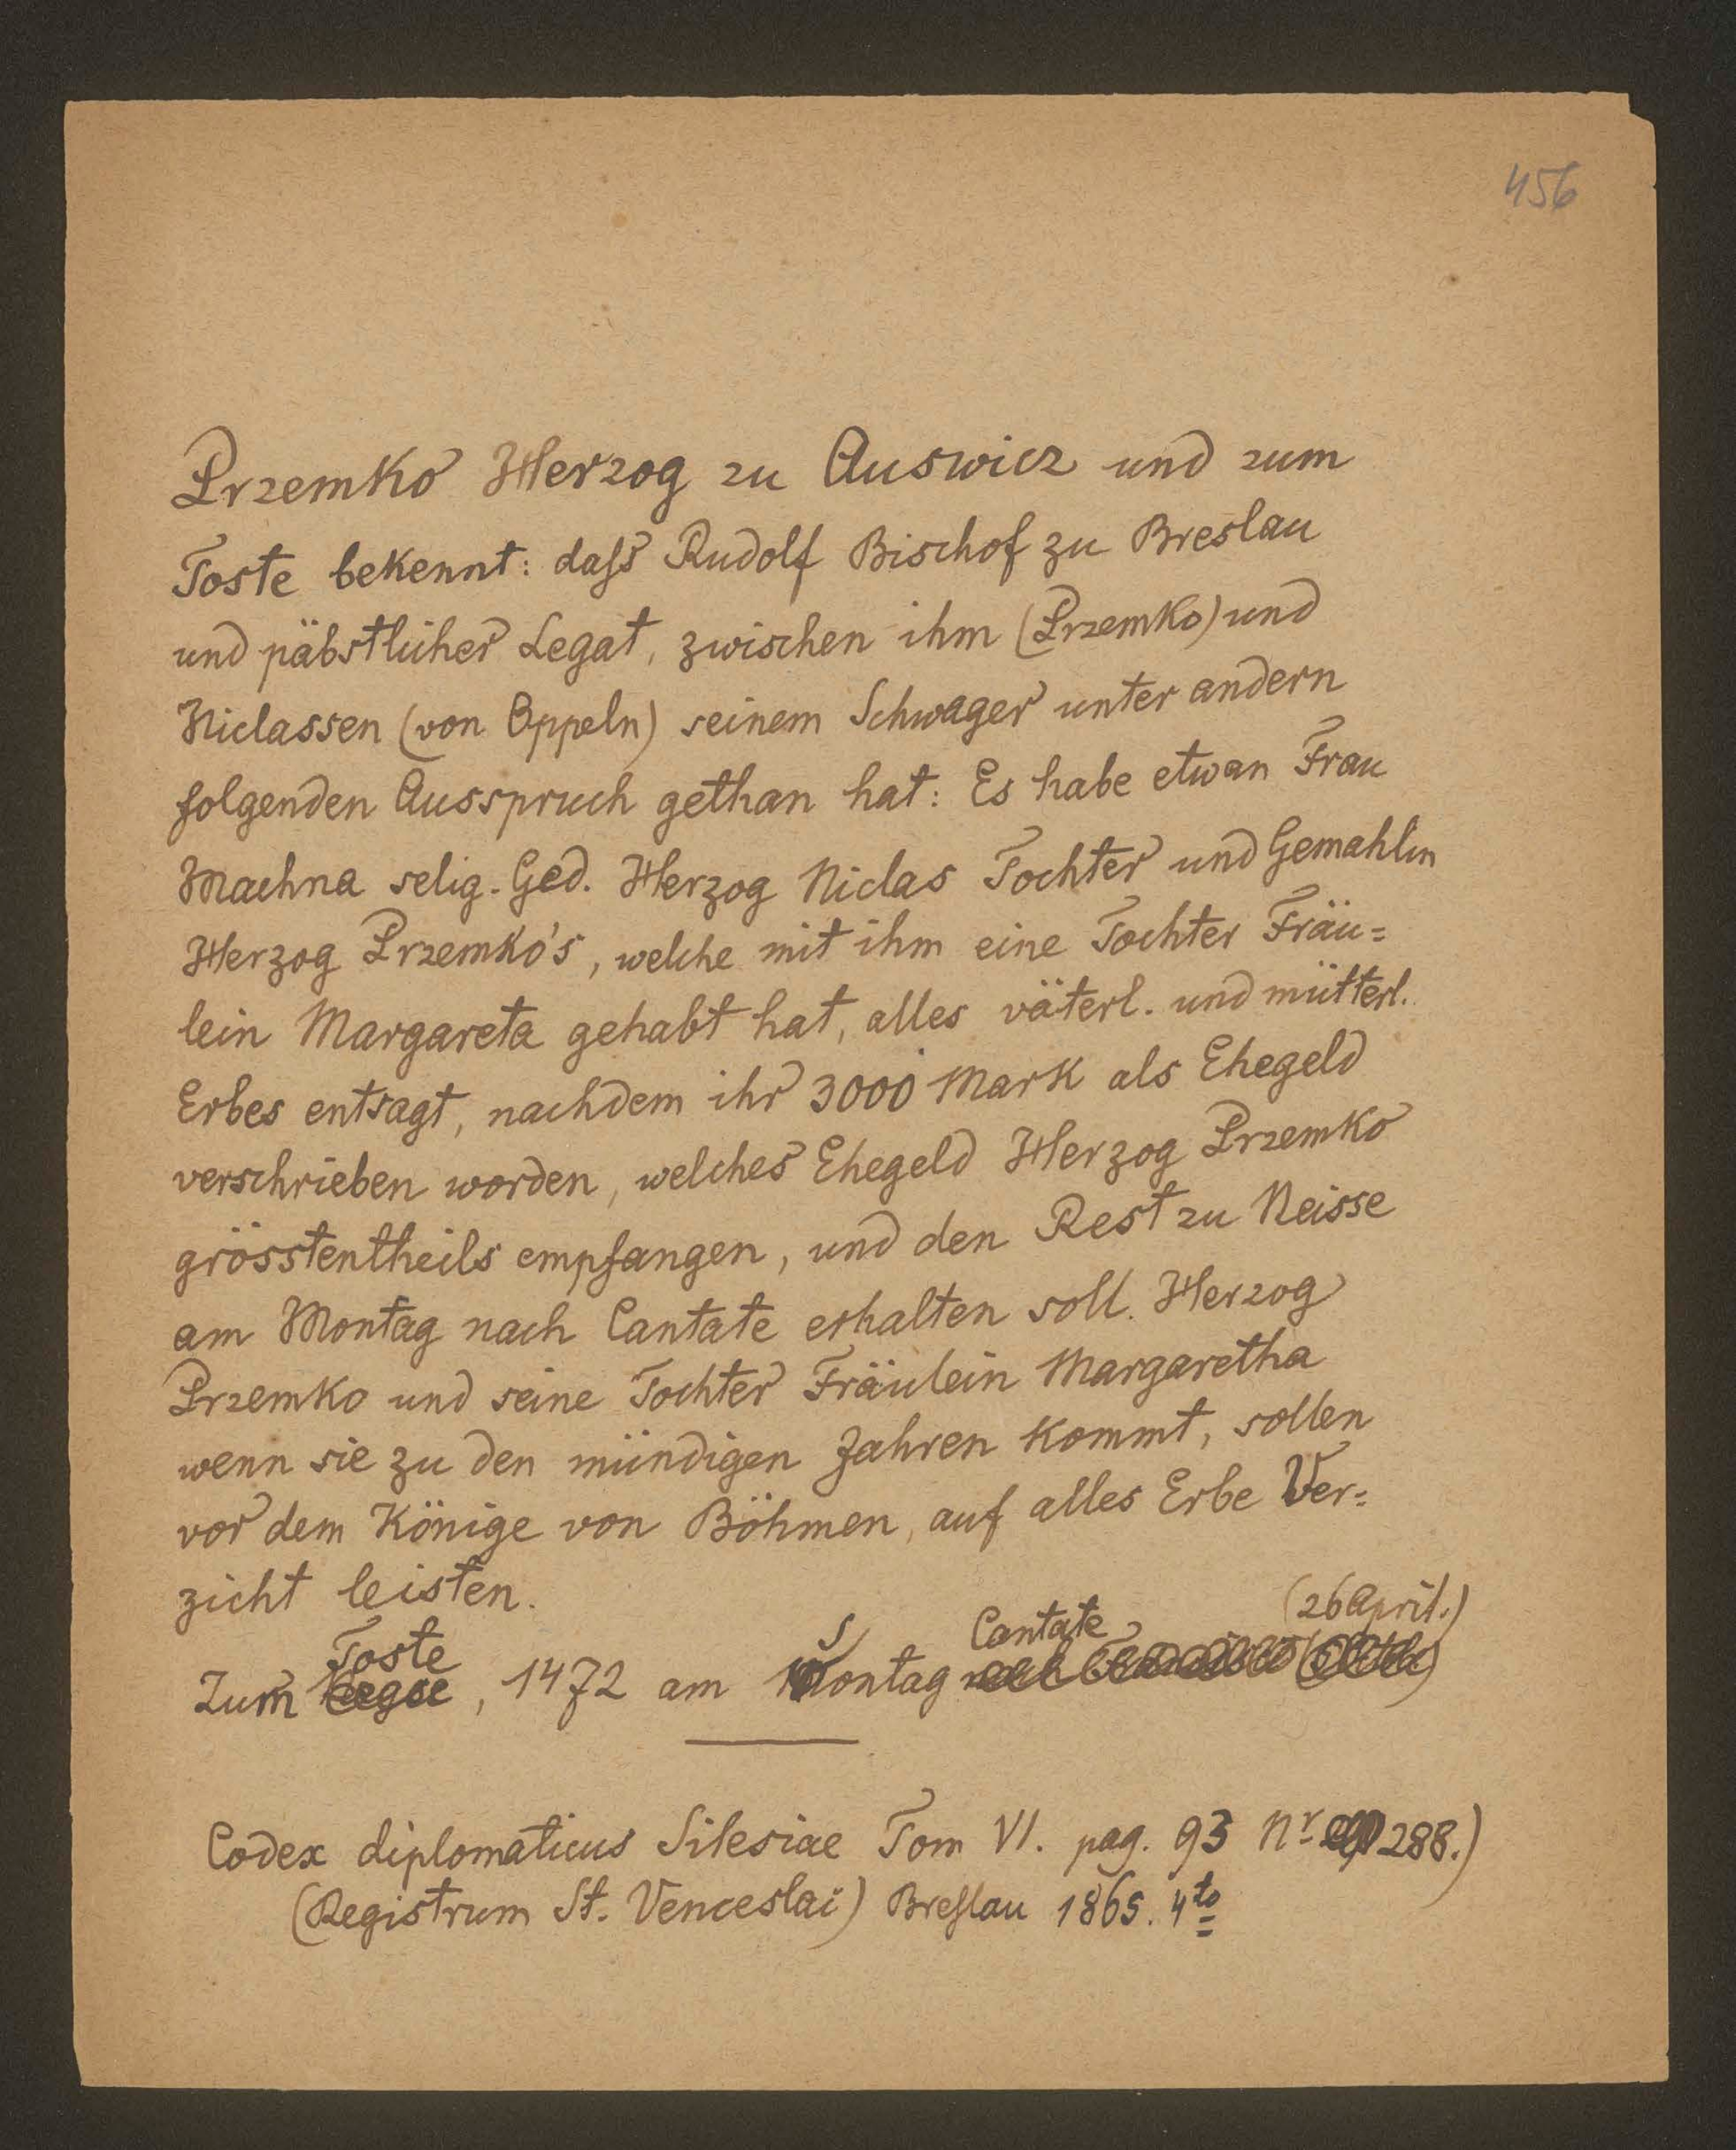 456
Przemko Herzog zu Auswicz und zum
Toste bekennt: daſs Rudolf Bischof zu Breslau
und päbstlicher Legat, zwischen ihm (Przemko) und
Niclassen (von Oppeln) seinem Schwager unter andern
folgenden Ausspruch gethan hat: Es habe etwan Frau
Machna selig. Ged. Herzog Niclas Tochter und Gemahlin
Herzog Przemko's, welche mit ihm eine Tochter Fräu=
lein Margareta gehabt hat, alles väterl. und mütterl.
Erbes entsagt, nachdem ihr 3000 Mark als Ehegeld
verschrieben worden, welches Ehegeld Herzog Przemko
grösstentheils empfangen, und den Rest zu Neisse
am Montag nach Cantate erhalten soll. Herzog
Przemko und seine Tochter Fräulein Margaretha
wenn sie zu den mündigen Jahren kommt, sollen
vor dem Könige von Böhmen, auf alles Erbe Ver=
zicht leisten.
Zum Toste, 1472 am Sontag Cantate (26 April.)
Codex diplomaticus Silesiae Tom VI. pag. 93 Nr 288.)
(Registrum St. Venceslai) Breſlau 1865. 4to